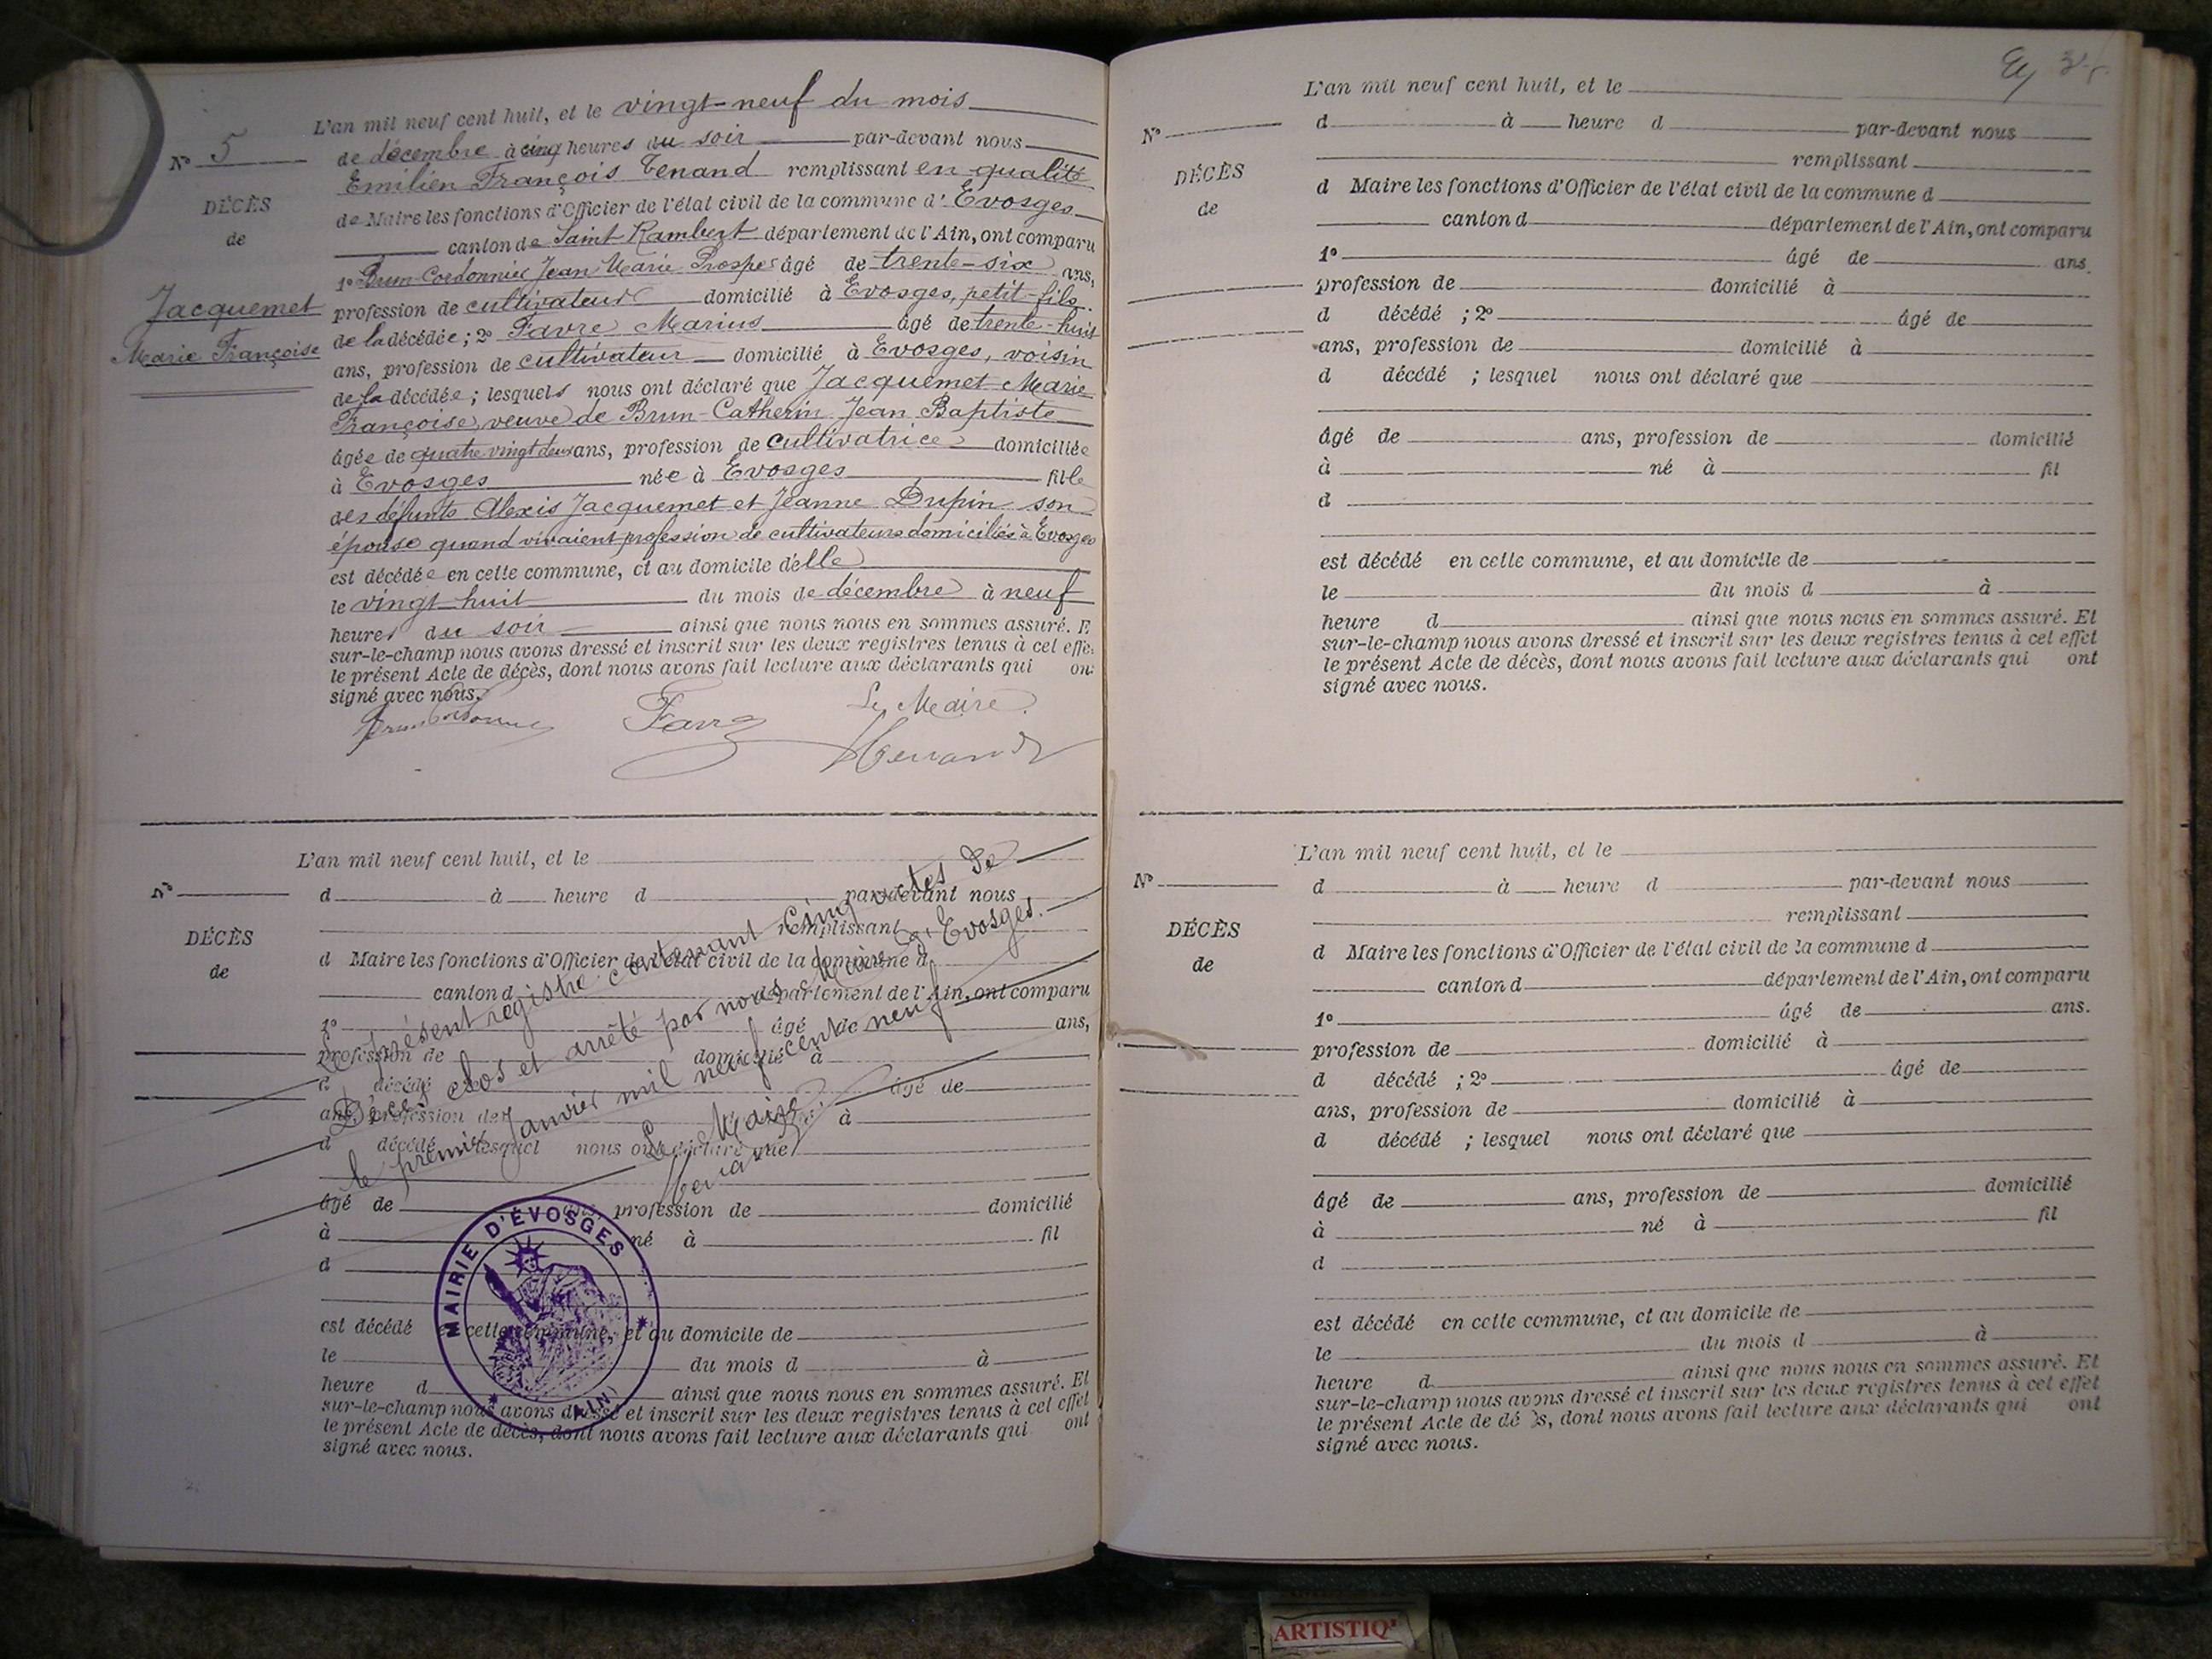 L'an mil neuf cent huit, et le vingt-neuf du mois
N° 5
de décembre à cinq heures du soir par-devant nous
Emilien François Tenand remplissant en qualité
DÉCÈS
de Maire les fonctions d'Officier de l'état civil de la commune d'Evosges
de
canton de Saint Rambert département de l'Ain, ont comparu
1° Brun-Cordonnier Jean Marie Prosper âgé de trente-six ans,
Jacquemet
profession de cultivateur domicilié à Evosges, petit-fils
de la décédée ; 2° Favre Marius âgé de trente-huit
Marie Françoise
ans, profession de cultivateur domicilié à Evosges, voisin
de la décédée ; lesquels nous ont déclaré que Jacquemet Marie
Françoise, veuve de Brun-Catherin Jean Baptiste
âgée de quatre vingt deux ans, profession de cultivatrice domiciliée
à Evosges née à Evosges fille
des défunts Alexis Jacquemet et Jeanne Dupin son
épouse quand vivaient profession de cultivateurs domiciliés à Evosges
est décédée en cette commune, et au domicile d'elle
le vingt huit du mois de décembre à neuf
heures du soir ainsi que nous nous en sommes assuré. E
sur-le-champ nous avons dressé et inscrit sur les deux registres tenus à cet effe
le présent Acte de décès, dont nous avons fait lecture aux déclarants qui on
signé avec nous.
Favre
Le Maire.
Tenand
L'an mil neuf cent huit, et le
N°
d à heure d par-devant nous
remplissant
DÉCÈS
d Maire les fonctions d'Officier de l'état civil de la commune d
de
canton d département de l'Ain, ont comparu
1° âgé de ans,
profession de domicilié à
d décédé âgé de
ans, profession de à
d décédé lesquel nous ont déclaré que
âgé de ans, profession de domicilié
à né à fil
d
est décédé en cette commune, et au domicile de
le du mois d à
heure d ainsi que nous nous en sommes assuré. Et
sur-le-champ nous avons dressé et inscrit sur les deux registres tenus à cet effet
le présent Acte de décès, dont nous avons fait lecture aux déclarants qui ont
signé avec nous.
Le présent registre contenant cinq actes de
Décès clos et arrêté par nous Maire d'Evosges.
le premier Janvier mil neuf cent neuf
Le Maire
Tenand
MAIRIE D'ÉVOSGES
(AIN)
L'an mil neuf cent huit, et le
N°
d à heure d par-devant nous
remplissant
DÉCÈS
d Maire les fonctions d'Officier de l'état civil de la commune d
de
canton d département de l'Ain, ont comparu
1° âgé de ans.
profession de domicilié à
d décédé ; 2° âgé de
ans, profession de domicilié à
d décédé ; lesquel nous ont déclaré que
âgé de ans, profession de domicilié
à né à fil
d
est décédé en cette commune, et au domicile de
le du mois d à
heure d ainsi que nous nous en sommes assuré. Et
sur-le-champ nous avons dressé et inscrit sur les deux registres tenus à cet effet
le présent Acte de décès, dont nous avons fait lecture aux déclarants qui ont
signé avec nous.
L'an mil neuf cent huit, et le
N°
d à heure d par-devant nous
remplissant
DÉCÈS
d Maire les fonctions d'Officier de l'état civil de la commune d
de
canton d département de l'Ain, ont comparu
1° âgé de ans.
profession de domicilié à
d décédé ; 2° âgé de
ans, profession de domicilié à
d décédé ; lesquel nous ont déclaré que
âgé de ans, profession de domicilié
à né à fil
d
est décédé en cette commune, et au domicile de
le du mois d à
heure d ainsi que nous nous en sommes assuré. Et
sur-le-champ nous avons dressé et inscrit sur les deux registres tenus à cet effet
le présent Acte de dé s, dont nous avons fait lecture aux déclarants qui ont
signé avec nous.
ARTISTIQ